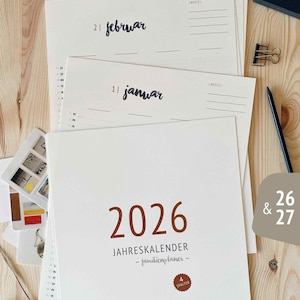 2 | februar
1 | januar
2026
JAHRESKALENDER
- familienplaner -
4
& 26
27